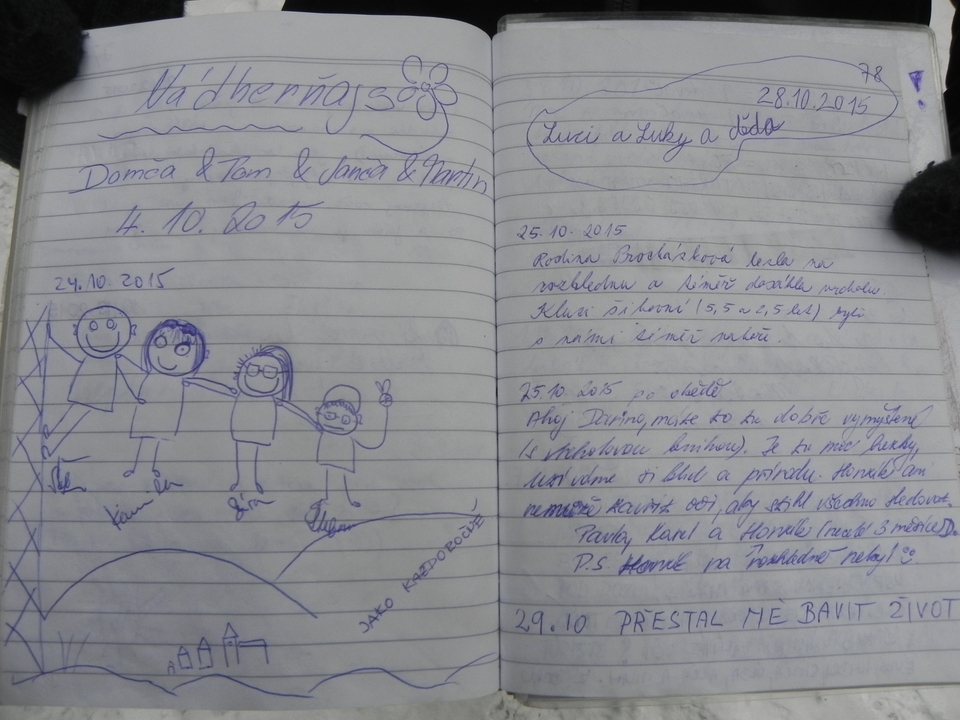 Nádherňajs
Domča & Tom & Janča & Martin
4. 10. 2015
24.10. 2015
JAKO KAŽDOROČNĚ
78
28.10.2015
Luci a Luky a děda
25.10. 2015
Rodina Procházková lezla na
rozhlednu a téměř dosáhla vrcholu.
Kluci šikovní (5,5 a 2,5 let) byli
s námi téměř nahoře.
25.10. 2015 po obědě
Ahoj Davino, máte to tu dobře vymyšlené
(s vrcholovou knihou). Je tu moc hezky,
užíváme si klid a přírodu. Honzík ani
nemůže zavřít oči, aby stihl všechno sledovat.
Pavla, Karel a Honzík (necelé 3 měsíce).
P.S. Honzík na rozhledně nebyl
29.10 PŘESTAL MĚ BAVIT ŽIVOT